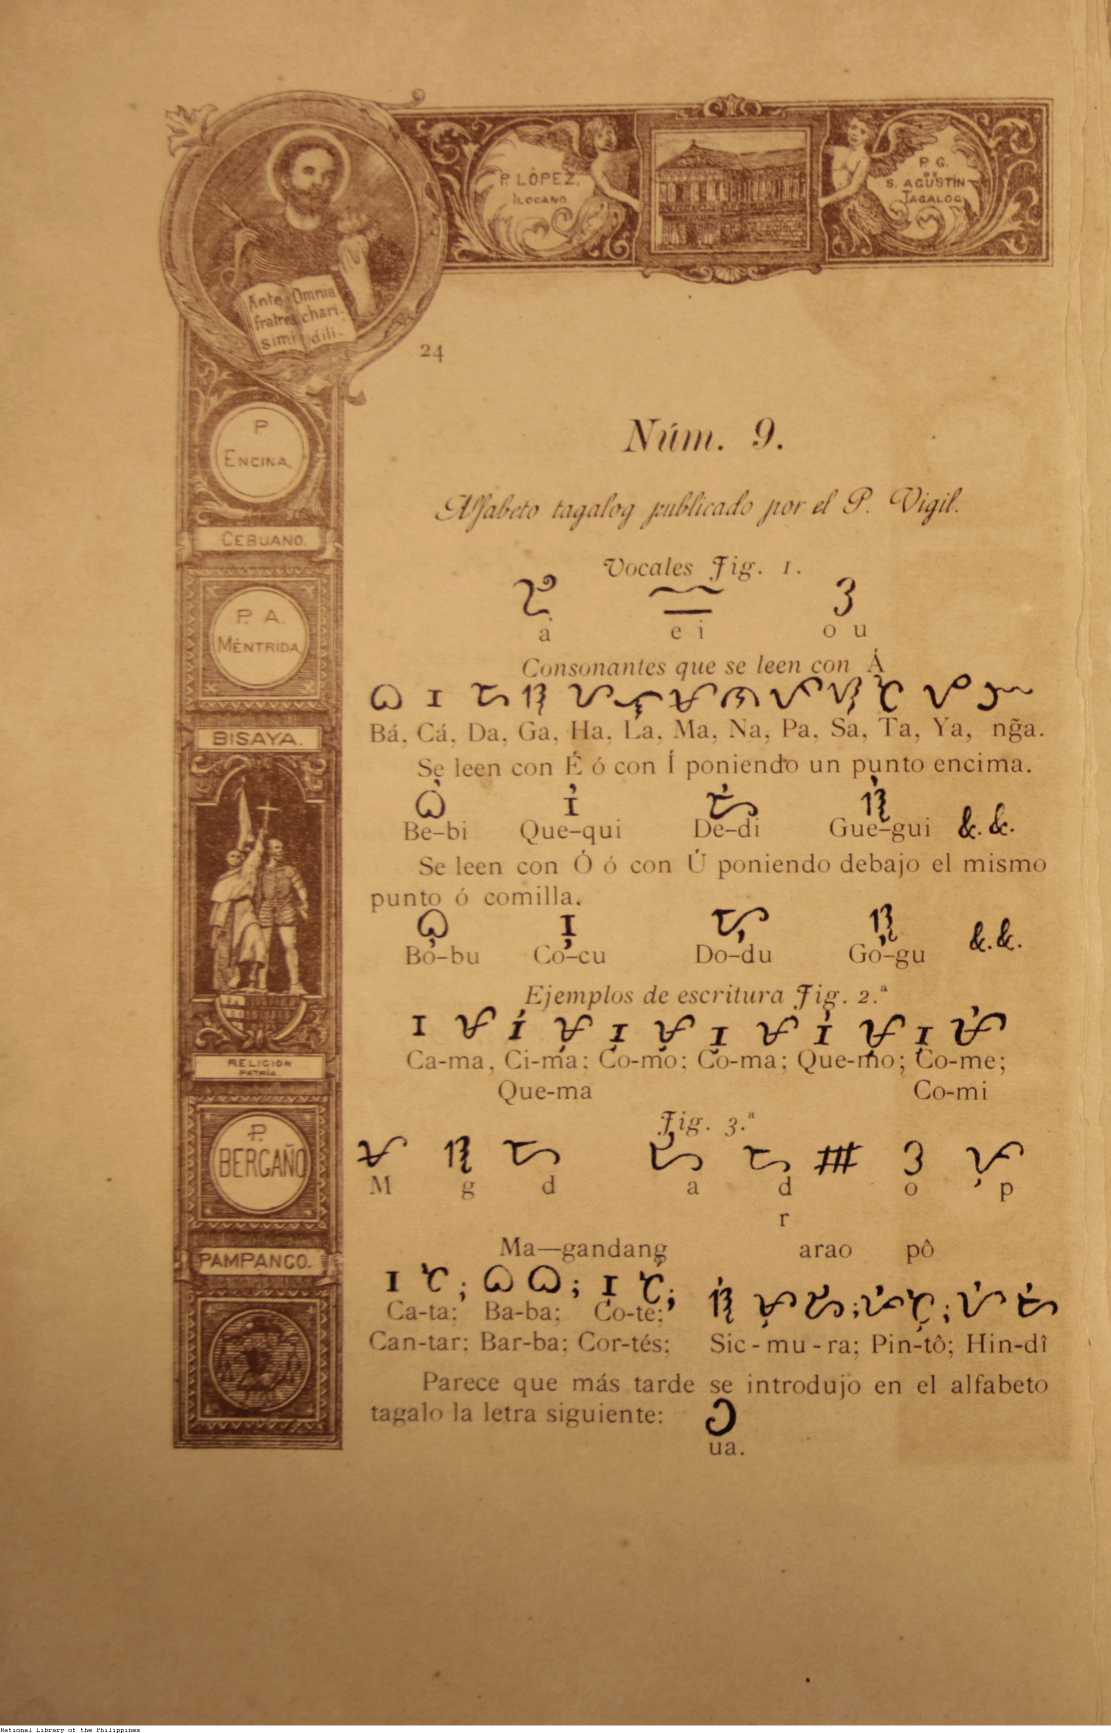 P. LÓPEZ.
ILOCANO
P. G.
DE
S. AGUSTIN
TAGALOG
Ante Omnia
fratres chari-
simi dili-
24
P
ENCINA.
CEBUANO.
P. A.
MÉNTRIDA
BISAYA.
RELIGION
PATRIA
P.
BERGAÑO
PAMPANGO.
Núm. 9.
Alfabeto tagalog publicado por el P. Vigil.
Vocales Fig. 1.
ᜀ ᜁ ᜂ
a e i o u
Consonantes que se leen con Á
ᜊ ᜃ ᜇ ᜄ ᜑ ᜎ ᜋ ᜈ ᜉ ᜐ ᜆ ᜌ ᜅ
Bá, Cá, Da, Ga, Ha, La, Ma, Na, Pa, Sa, Ta, Ya, ng̃a.
Se leen con É ó con Í poniendo un punto encima.
ᜊᜒ ᜃᜒ ᜇᜒ ᜄᜒ
Be–bi Que–qui De–di Gue–gui &. &.
Se leen con Ó ó con Ú poniendo debajo el mismo
punto ó comilla.
ᜊᜓ ᜃᜓ ᜇᜓ ᜄᜓ
Bo–bu Co–cu Do–du Go–gu &. &.
Ejemplos de escritura Fig. 2.ª
ᜃ ᜋ ᜃᜒ ᜋ ᜃᜓ ᜋᜓ ᜃᜓ ᜋ ᜃᜒ ᜋᜓ ᜃᜓ ᜋᜒ
Ca-ma, Ci-ma; Co-mo; Co-ma; Que-mo; Co-me;
Que-ma Co-mi
Fig. 3.ª
ᜋ ᜄ ᜇ ᜀ ᜇ ᜂ ᜉᜓ
M g d a d o p
r
Ma—gandang arao pô
ᜃ ᜆ ; ᜊ ᜊ ; ᜃᜓ ᜆᜒ ; ᜐᜒ ᜋᜓ ᜇ ; ᜉᜒ ᜆᜓ ; ᜑᜒ ᜇᜒ
Ca-ta; Ba-ba; Co-te;
Can-tar; Bar-ba; Cor-tés; Sic-mu-ra; Pin-tô; Hin-dî
Parece que más tarde se introdujo en el alfabeto
tagalo la letra siguiente: ᜏ
ua.
National Library of the Philippines